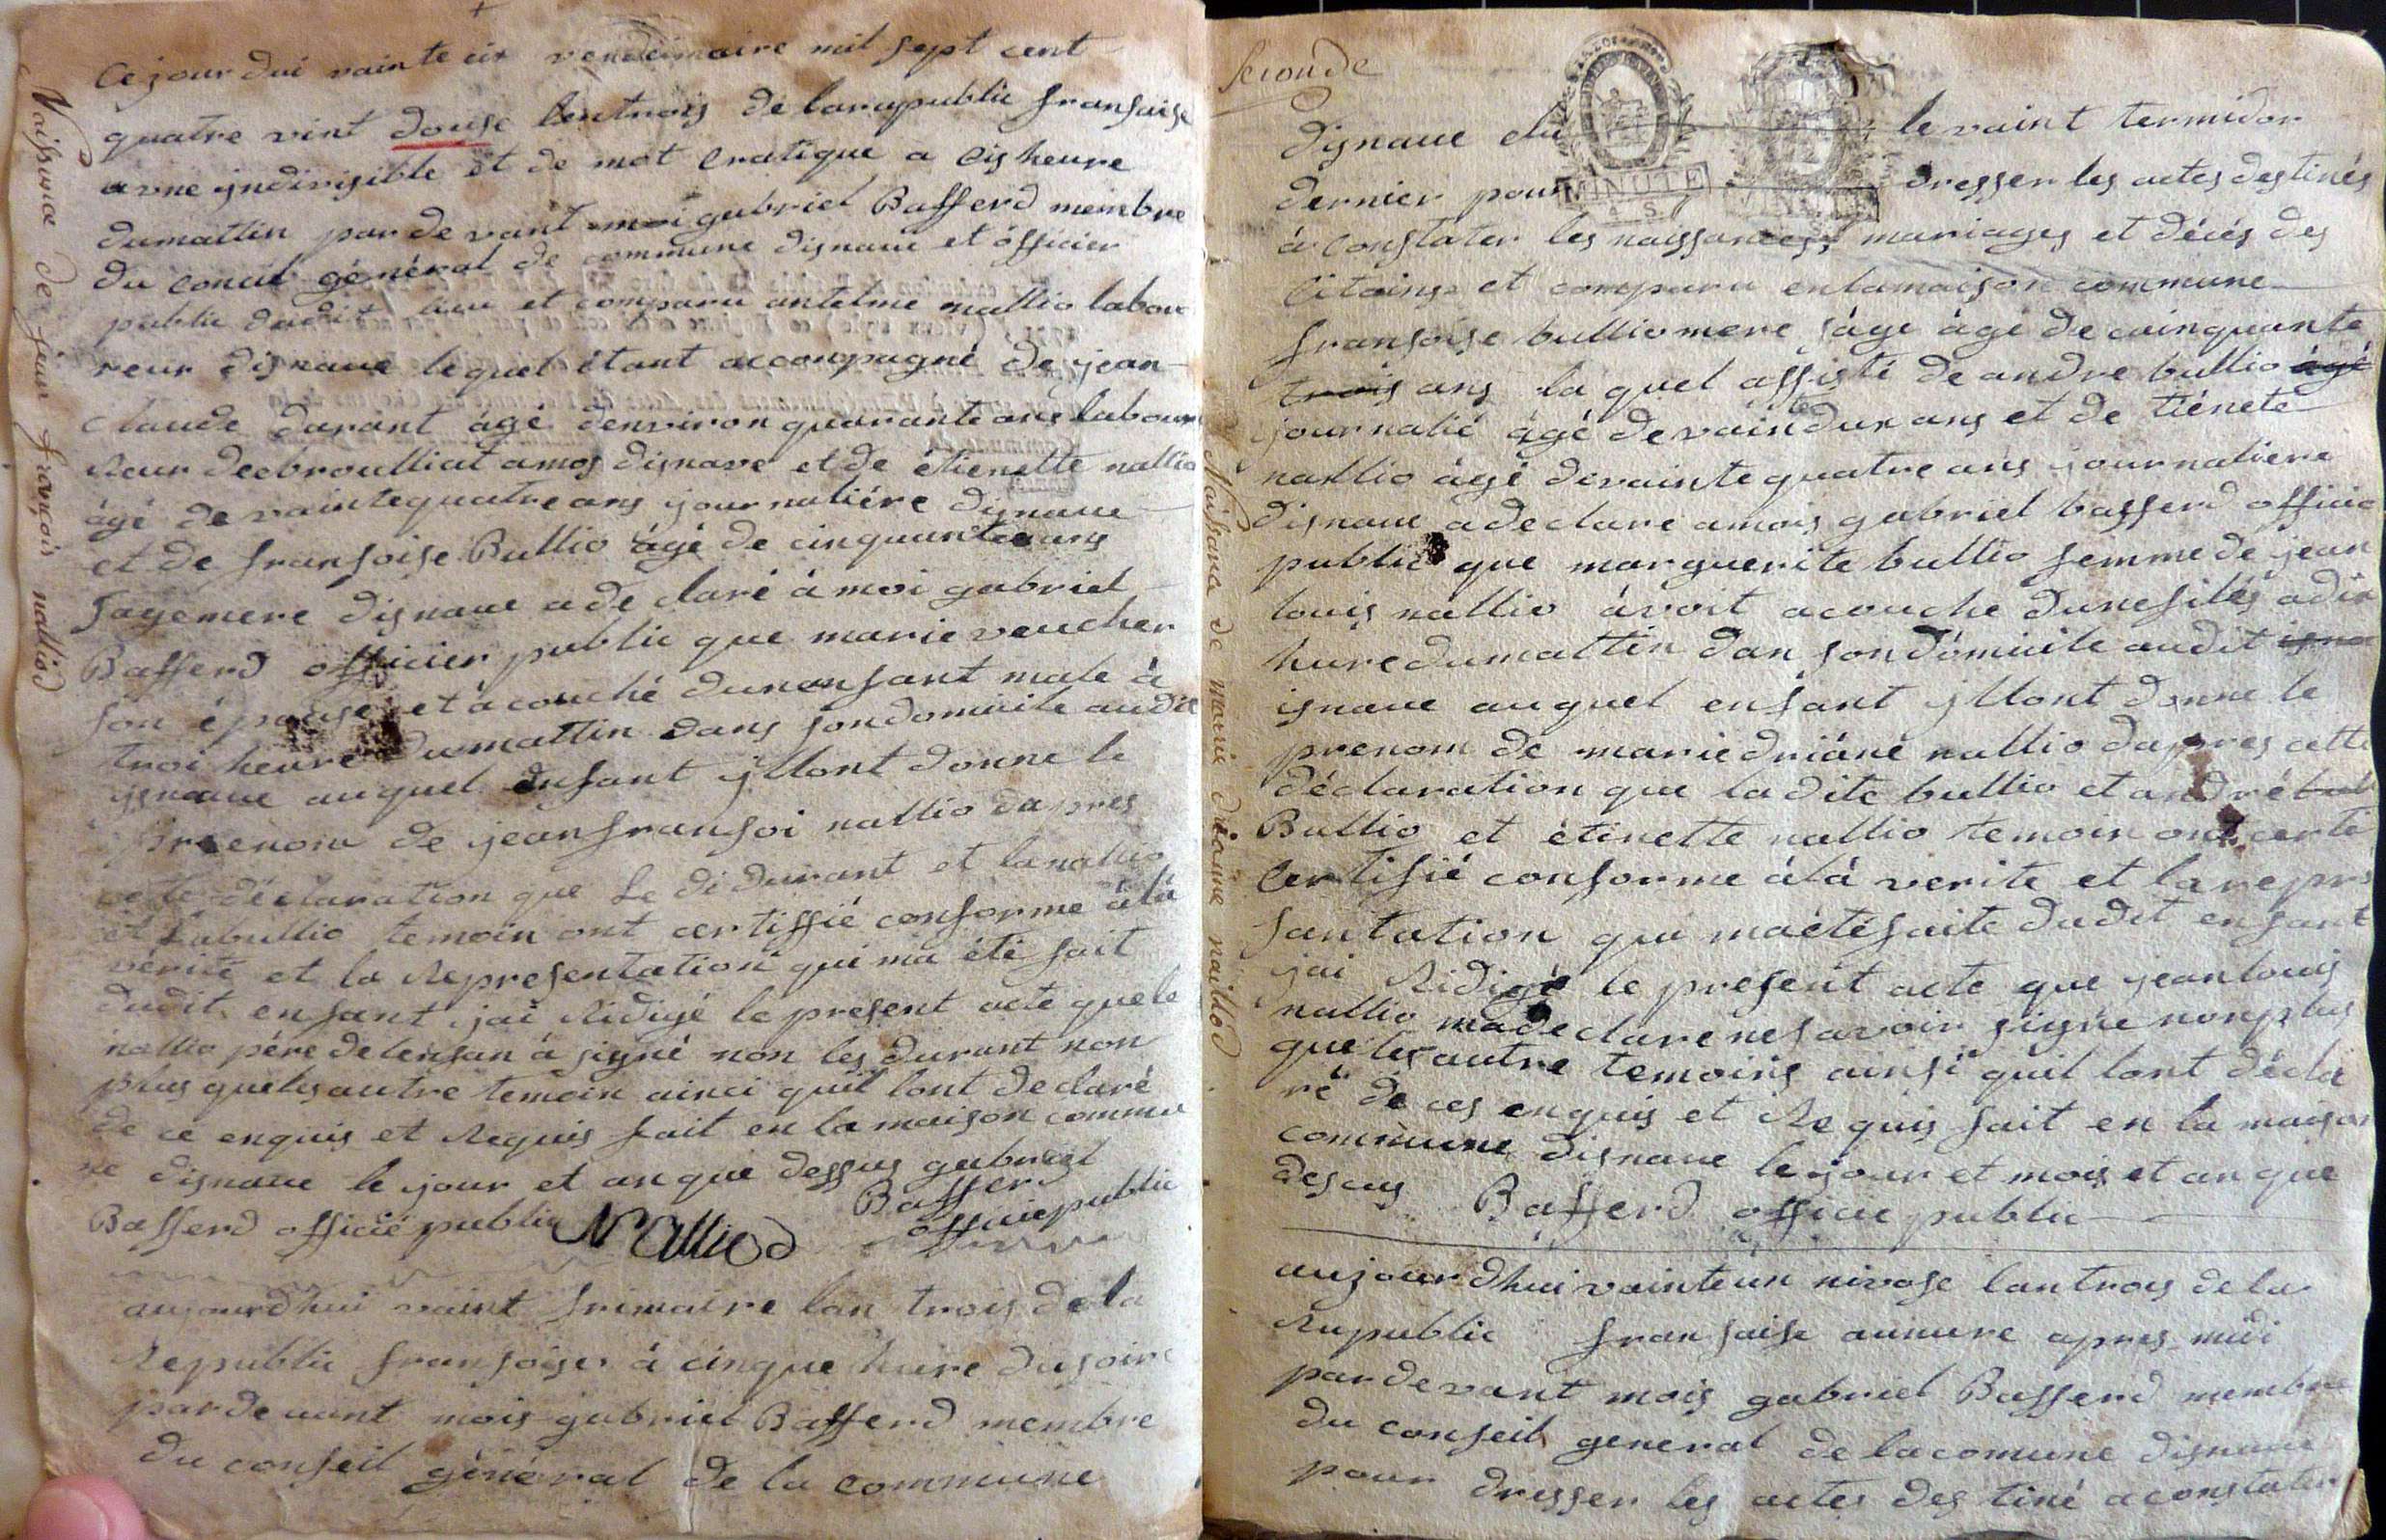 Naissance de jean françois nalliod
Cejourdui vainte cis vendéimaire mil sept cent
quatre vint douse lentrois de larepublic fransaise
avne yndivisible et de mot cratique a cis heure
dumattin par de vant moi gabriel Bafferd membre
du conul général de commune disnave et officier
public dudit lieu et comparu antelme nallio labou
reur disnave lequel étant accompagné de jean
claude durant âgé denviron quarante ans labour
Reur deebroulliat amos disnave et de étienette nallio
âgé de vaintequatre ans journaliére disnave
et de fransoise Bullio âgé de cinquanteans
sagemere disnave a de claré à moi gabriel
Bafferd officier public que marie veucher
son épouse et à couché dunenfant male à
troi heure dumattin dans sondomicile audit
ysnave auquel enfant yllont donne le
preenom de jeanfransoi nallio dapres
cete déclaration que le di durant et lanallio
et labullio temoin ont certiffié conforme àlà
vérité et la Representation qui ma été fait
dudit enfant jai Ridigé le present acte quele
nallio pére delenfan à signé non les durant non
plus quelesautre temoin ainci quil lont declaré
de ce enquis et Requis fait en la maison commu
ne disnave le jour et an que dessus gabriel
Bafferd officié public Nalliod Bafferd
officiepublic
aujourdhui vaint frimaire lan trois dela
Republic fransoise à cinque hure dusoire
pardevant mois gabriel Bafferd membre
du conseil général de la commune
seconde
Naissance de marie driane nalliod
disnave élu le vaint termidor
dernier pour dresser les actes destinés
MINUTE
à constater les naissances mariages et décés des
citoins et comparu enlamaison commune
fransoise bullio mere sage âgé de cinquante
trois ans la quel assisté de andre bullio âgé
journalié âgé devaintedux ans et de tiénete
nallio àgé devainte quatre ans journaliere
disnave a declare amois gabriel bafferd officie
public que marguerite bullio femme de jean
louis nallio àvoit acouche dunefiles adix
hure dumattin dan son dómicile audit isna
isnave auquel enfant yllont donne le
prenom de mariedriáné nallio dapres cette
déclaration que ladite bullio et andré bul
Bullio et étinette nallio temoin ont certi
certifié conforme álá verite et larepre
santation qui maétéfaite dudit enfant
jai Ridigé le present acte que jeanlouis
nallio madeclare nesavoir signe nonplus
que les autre temoins ainsi quil lont décla
ré de ces enquis et Re quis fait en la maison
commune disnave lejour et mois et an que
desus Bafferd officie public
aujourdhui vainteun nivose lantrois dela
Republic fransaise aunure apres midi
pardevant mois gabriel Bafferd membre
du conseil general de lacomune disnave
pour dresser les actes des tiné aconstater